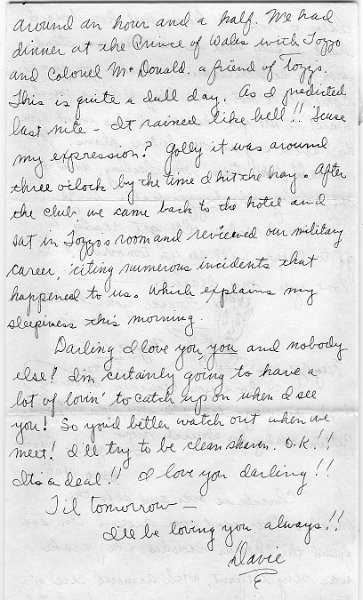 around an hour and a half. We had
dinner at the Prince of Wales with Tozzo
and Colonel McDonald, a friend of Tozzs.
This is quite a dull day. As I predicted
last nite - It rained like hell!! 'Scuse
my expression? Golly it was around
three o'clock by the time I hit the hay. After
the club, we came back to the hotel and
sat in Tozzos room and reviewed our military
career, citing numerous incidents that
happened to us. Which explains my
sleepiness this morning.
Darling I love you, you and nobody
else! I'm certainly going to have a
lot of lovin' to catch up on when I see
you! So you'd better watch out when we
meet! I'll try to be clean shaven. O.K!!
Its a deal!! I love you darling!!
Til tomorrow —
I'll be loving you always!!
Davie